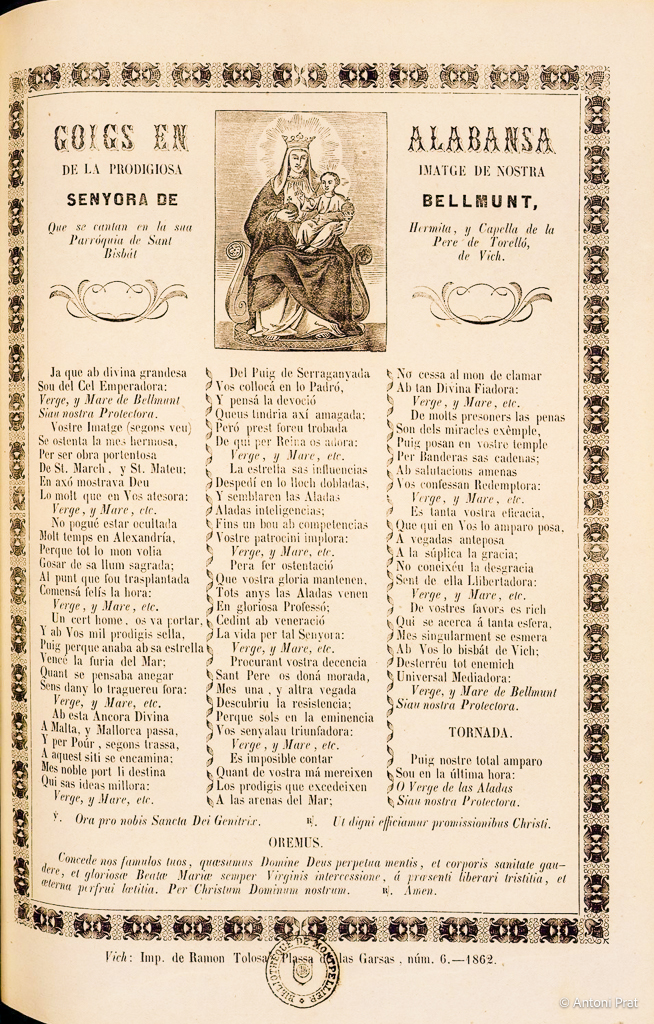 GOIGS EN ALABANSA
DE LA PRODIGIOSA IMATGE DE NOSTRA
SENYORA DE BELLMUNT,
Que se cantan en la sua Hermita, y Capella de la
Parróquia de Sant Pere de Torelló,
Bisbát de Vich.
Ja que ab divina grandesa
Sou del Cel Emperadora:
Verge, y Mare de Bellmunt
Siau nostra Protectora.
Vostre Imatge (segons veu)
Se ostenta la mes hermosa,
Per ser obra portentosa
De St. March, y St. Mateu;
En axó mostrava Deu
Lo molt que en Vos atesora:
Verge, y Mare, etc.
No pogué estar ocultada
Molt temps en Alexandría,
Perque tot lo mon volia
Gosar de sa llum sagrada;
Al punt que fou trasplantada
Comensá felís la hora:
Verge, y Mare, etc.
Un cert home, os va portar,
Y ab Vos mil prodigis sella,
Puig perque anaba ab sa estrella
Vencé la furia del Mar;
Quant se pensaba anegar
Sens dany lo traguereu fora:
Verge, y Mare, etc.
Ab esta Ancora Divina
A Malta, y Mallorca passa,
Y per Poúr, segons trassa,
A aquest siti se encamina;
Mes noble port li destina
Qui sas ideas millora:
Verge, y Mare, etc.
Del Puig de Serraganyada
Vos collocá en lo Padró,
Y pensá la devoció
Queus tindria axí amagada;
Peró prest foreu trobada
De qui per Reina os adora:
Verge, y Mare, etc.
La estrella sas influencias
Despedí en lo lloch dobladas,
Y semblaren las Aladas
Aladas inteligencias;
Fins un bou ab competencias
Vostre patrocini implora:
Verge, y Mare, etc.
Pera fer ostentació
Que vostra gloria mantenen,
Tots anys las Aladas venen
En gloriosa Professó;
Cedint ab veneració
La vida per tal Senyora:
Verge, y Mare, etc.
Procurant vostra decencia
Sant Pere os doná morada,
Mes una, y altra vegada
Descubriu la resistencia;
Perque sols en la eminencia
Vos senyalau triunfadora:
Verge, y Mare, etc.
Es imposible contar
Quant de vostra má mereixen
Los prodigis que excedeixen
A las arenas del Mar;
No cessa al mon de clamar
Ab tan Divina Fiadora:
Verge, y Mare, etc.
De molts presoners las penas
Son dels miracles exémple,
Puig posan en vostre temple
Per Banderas sas cadenas;
Ab salutacions amenas
Vos confessan Redemptora:
Verge, y Mare, etc.
Es tanta vostra eficacia,
Que qui en Vos lo amparo posa,
A vegadas anteposa
A la súplica la gracia;
No coneixéu la desgracia
Sent de ella Llibertadora:
Verge, y Mare, etc.
De vostres favors es rich
Qui se acerca á tanta esfera,
Mes singularment se esmera
Ab Vos lo bisbát de Vich;
Desterréu tot enemich
Universal Mediadora:
Verge, y Mare de Bellmunt
Siau nostra Protectora.
TORNADA.
Puig nostre total amparo
Sou en la última hora:
O Verge de las Aladas
Siau nostra Protectora.
℣. Ora pro nobis Sancta Dei Genitrix. ℟. Ut digni efficiamur promissionibus Christi.
OREMUS.
Concede nos famulos tuos, quæsumus Domine Deus perpetua mentis, et corporis sanitate gau-
dere, et gloriosæ Beatæ Mariæ semper Virginis intercessione, á præsenti liberari tristitia, et
æterna perfrui lætitia. Per Christum Dominum nostrum. ℟. Amen.
Vich: Imp. de Ramon Tolosa, Plassa de las Garsas, núm. 6.—1862.
BIBLIOTHÈQUE DE MONTPELLIER
© Antoni Prat